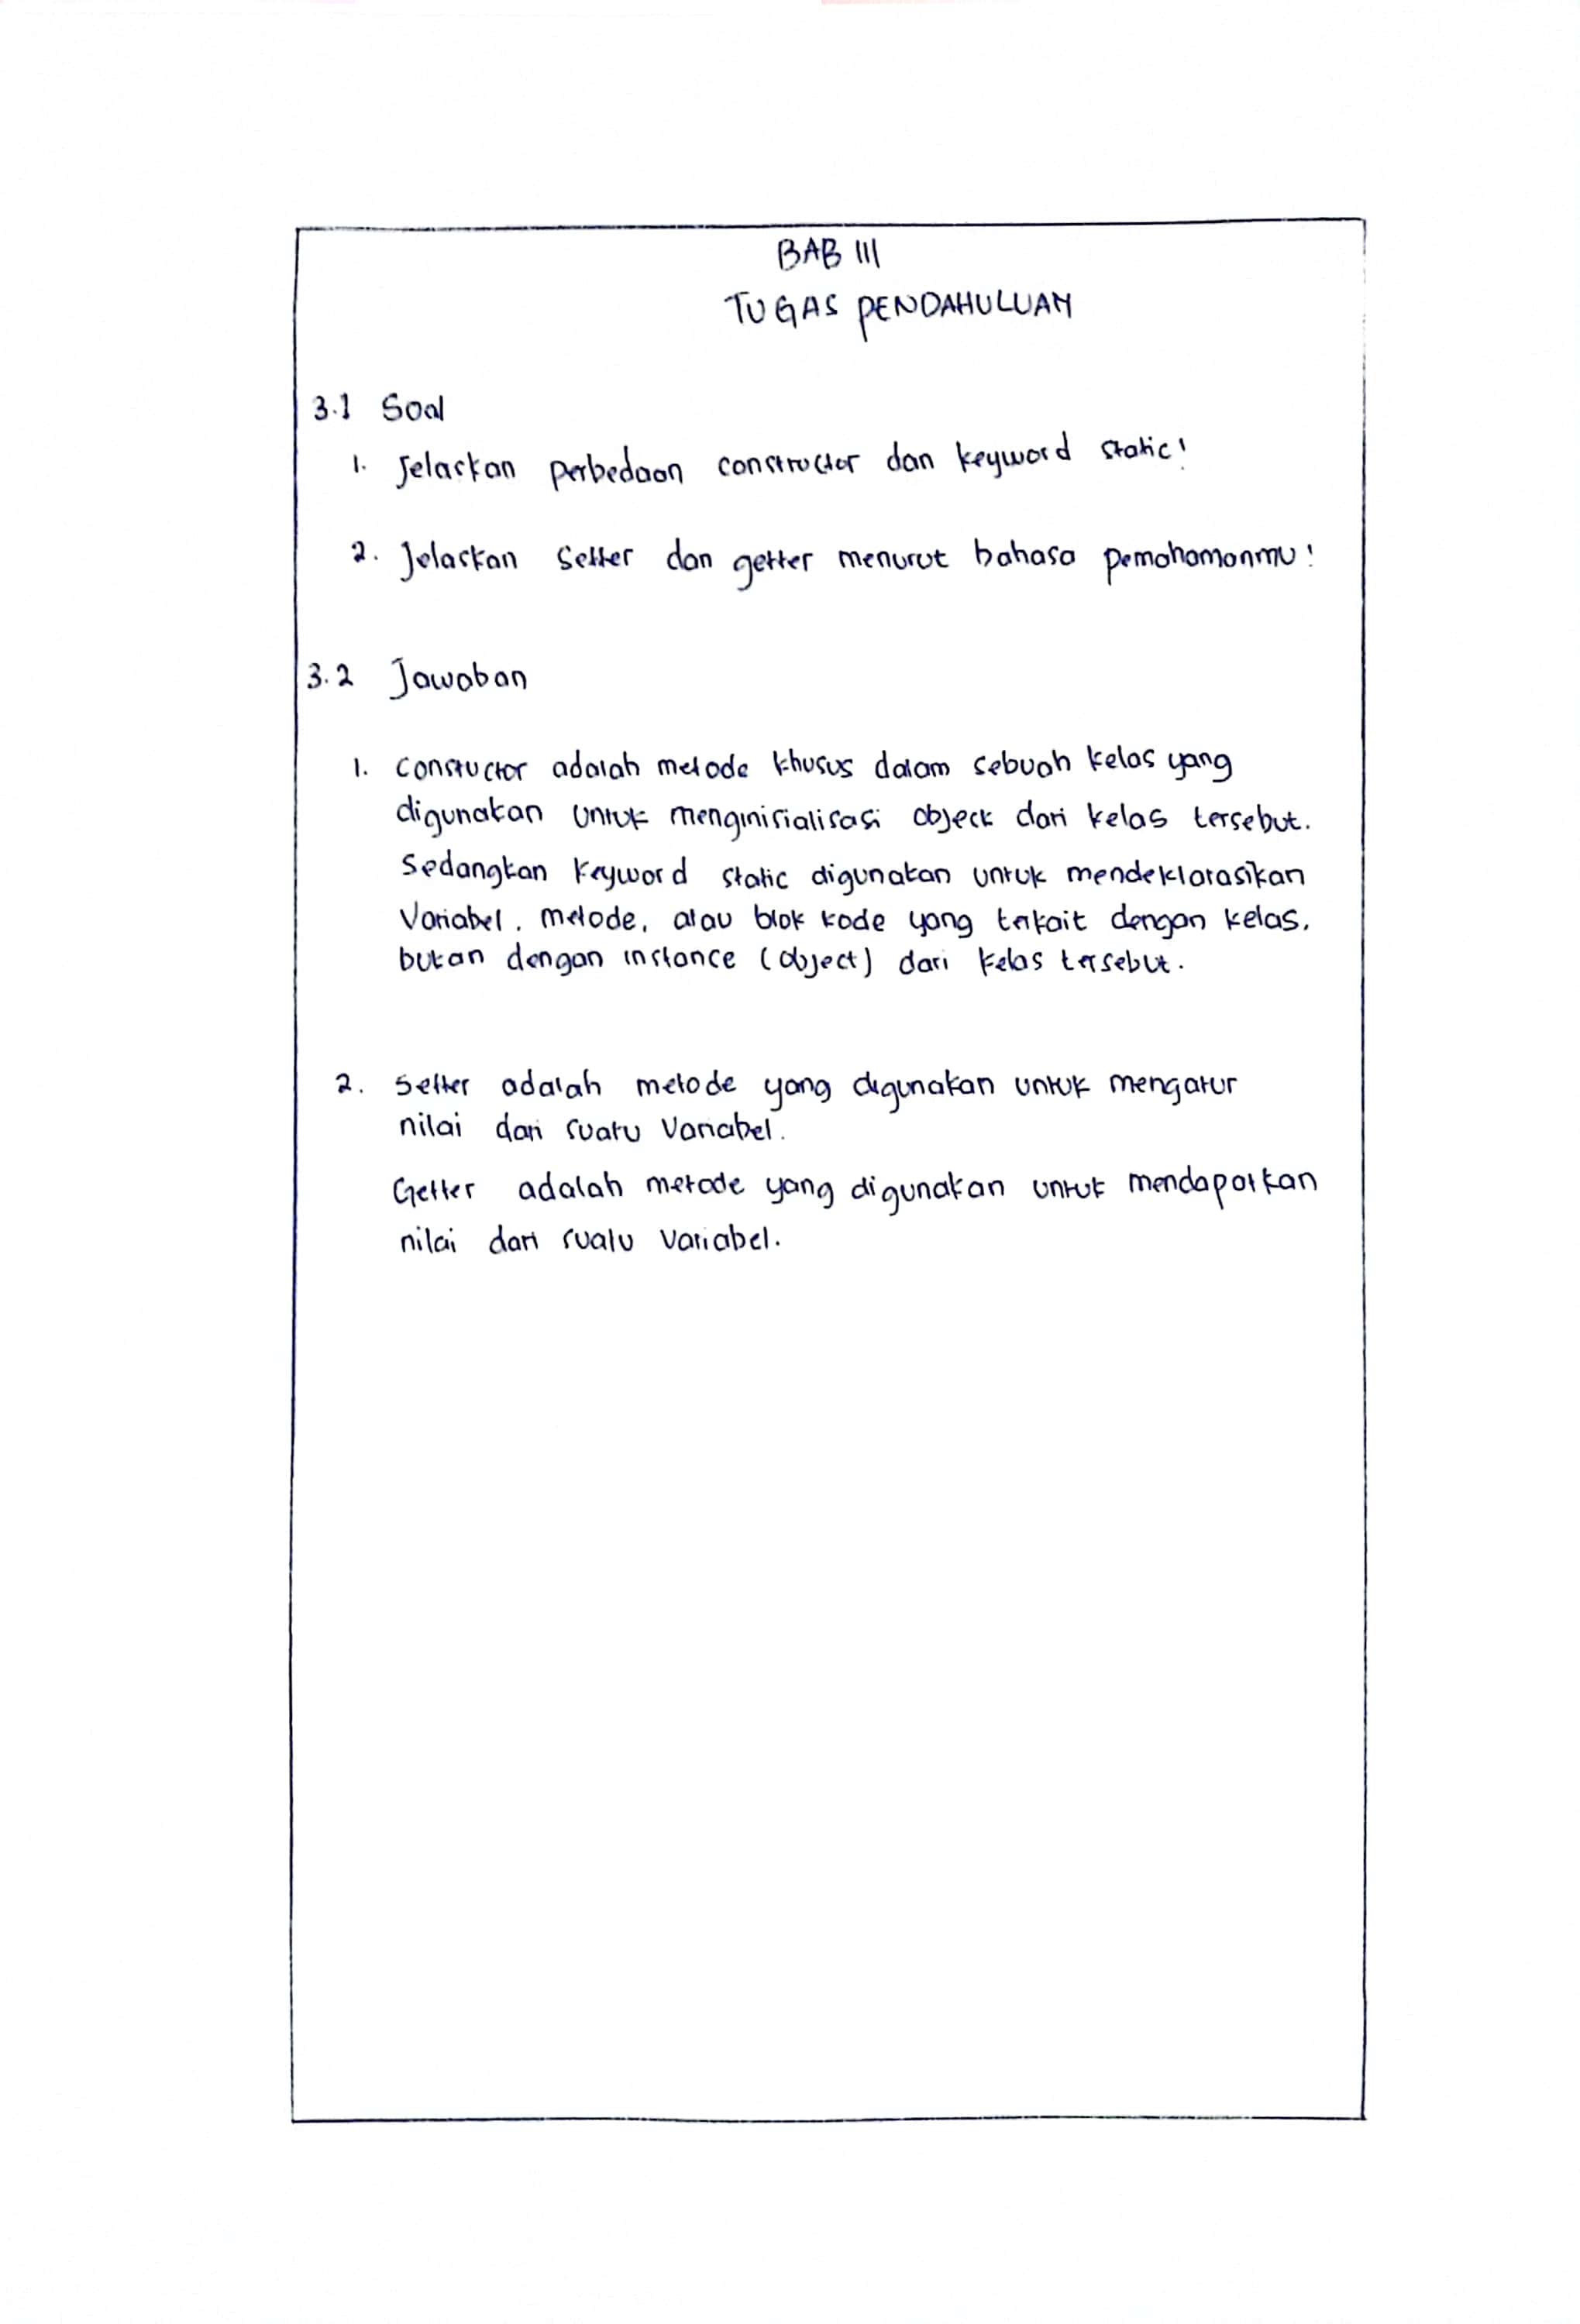 BAB III
TUGAS PENDAHULUAN
3.1 Soal
1. Jelaskan perbedaan constructor dan keyword static!
2. Jelaskan setter dan getter menurut bahasa pemahamanmu!
3.2 Jawaban
1. Constuctor adalah metode khusus dalam sebuah kelas yang
digunakan untuk menginisialisasi object dari kelas tersebut.
Sedangkan keyword static digunakan untuk mendeklarasikan
Variabel, metode, atau blok kode yang terkait dengan kelas,
bukan dengan instance (object) dari kelas tersebut.
2. Setter adalah metode yang digunakan untuk mengatur
nilai dari suatu Variabel.
Getter adalah metode yang digunakan untuk mendapatkan
nilai dari suatu variabel.